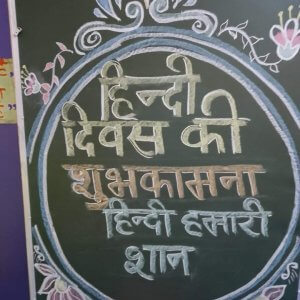 हिन्दी
दिवस की
शुभकामना
हिन्दी हमारी
शान